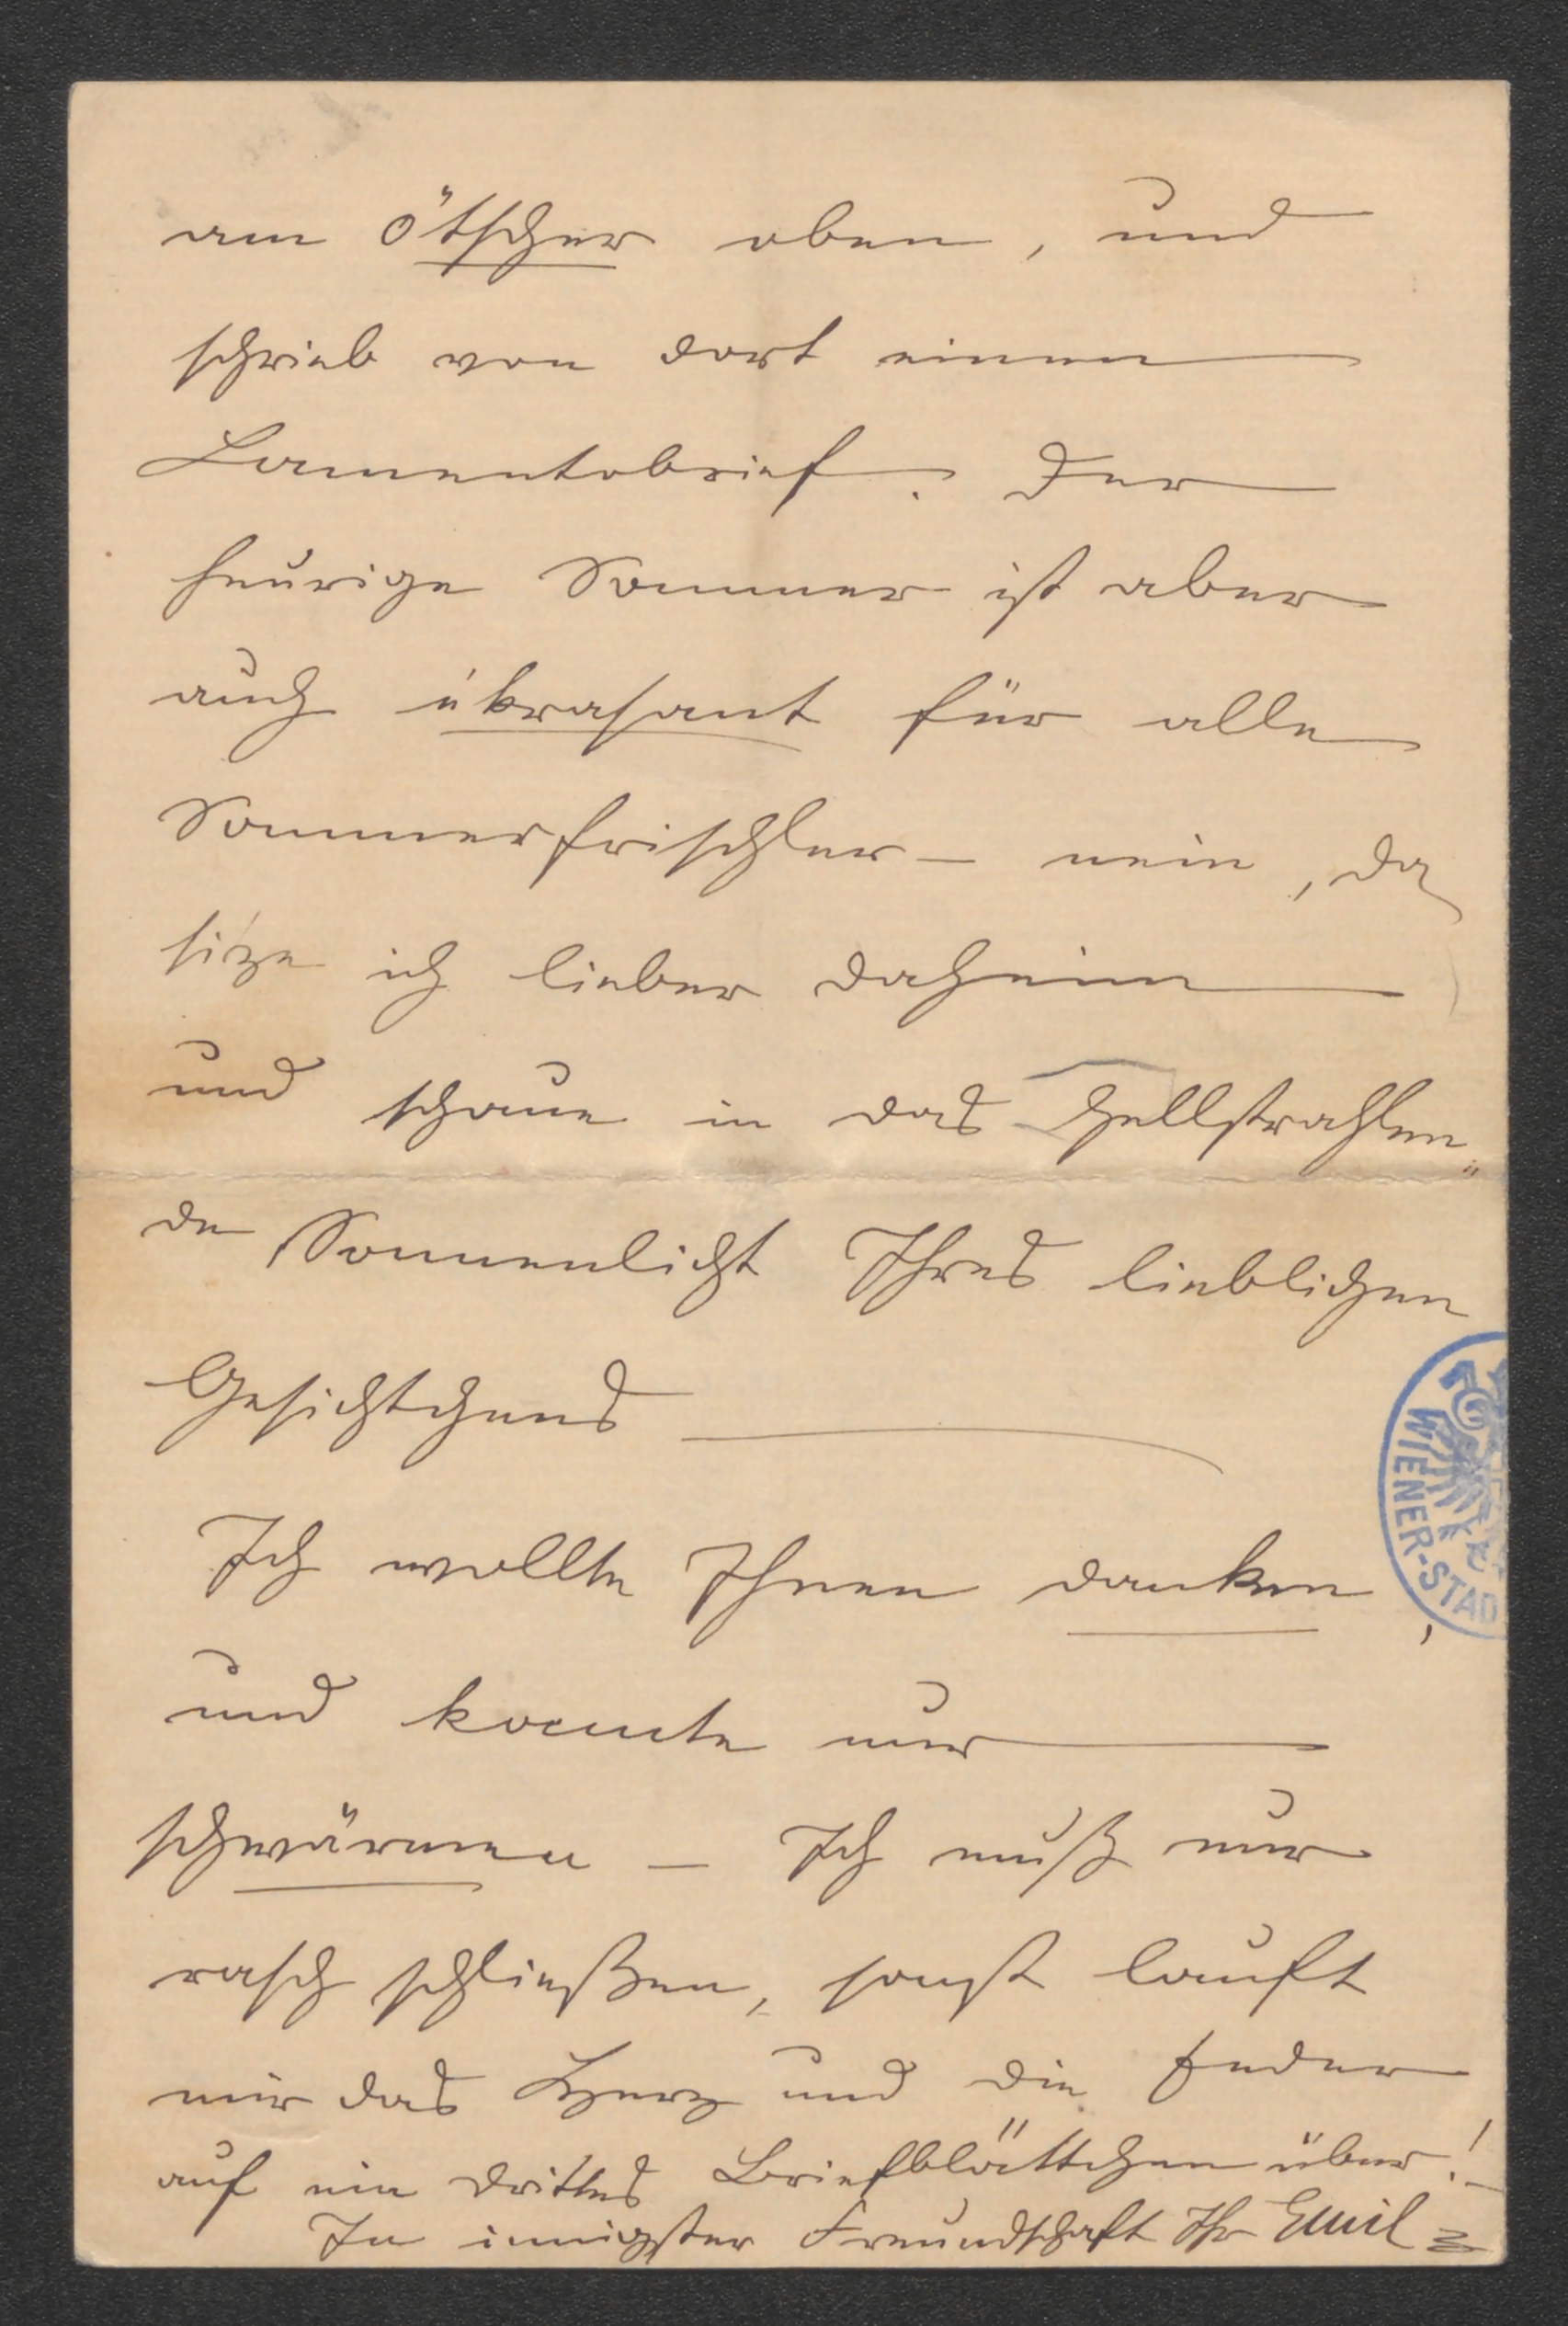 am Ötscher oben, und
schrieb von dort einen
Lamentobrief. Der
heurige Sommer ist aber
auch ékrasant für alle
Sommerfrischler – nein, da
size ich lieber daheim
und schaue in das hellstrahlen„
de Sonnenlicht Ihres lieblichen
Gesichtchens
Ich wollte Ihnen danken,
und konnte nur
schwärmen – Ich muß nur
rasch schließen, sonst lauft
mir das Herz und die Feder
auf ein drittes Briefblättchen über! –
In innigster Freundschaft Ihr Emil
WIENER-STAD